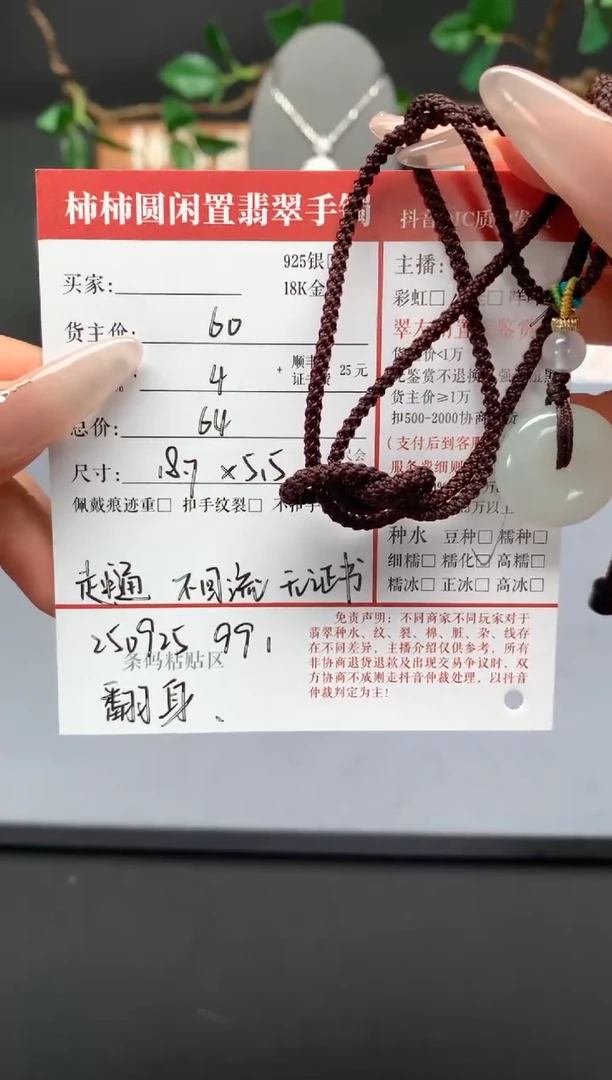 柿柿圆闲置翡翠手镯
抖音
925银
18K金
买家:
货主价: 60
4
+ 顺丰
证书费
25元
总价: 64
尺寸: 18.7 ×5.5
佩戴痕迹重□ 扣手纹裂□
走半通 不回流 无证书
250925 991
条码粘贴区
翻身、
主播:
彩虹□
货主价<1万
无鉴赏不退换
货主价≥1万
扣500-2000协商
(支付后到客服
服务费细则
种水 豆种□ 糯种□
细糯□ 糯化□ 高糯□
糯冰□ 正冰□ 高冰□
免责声明:不同商家不同玩家对于
翡翠种水、纹、裂、棉、脏、杂、线存
在不同差异,主播介绍仅供参考,所有
非协商退货退款及出现交易争议时,双
方协商不成则走抖音仲裁处理,以抖音
仲裁判定为主!